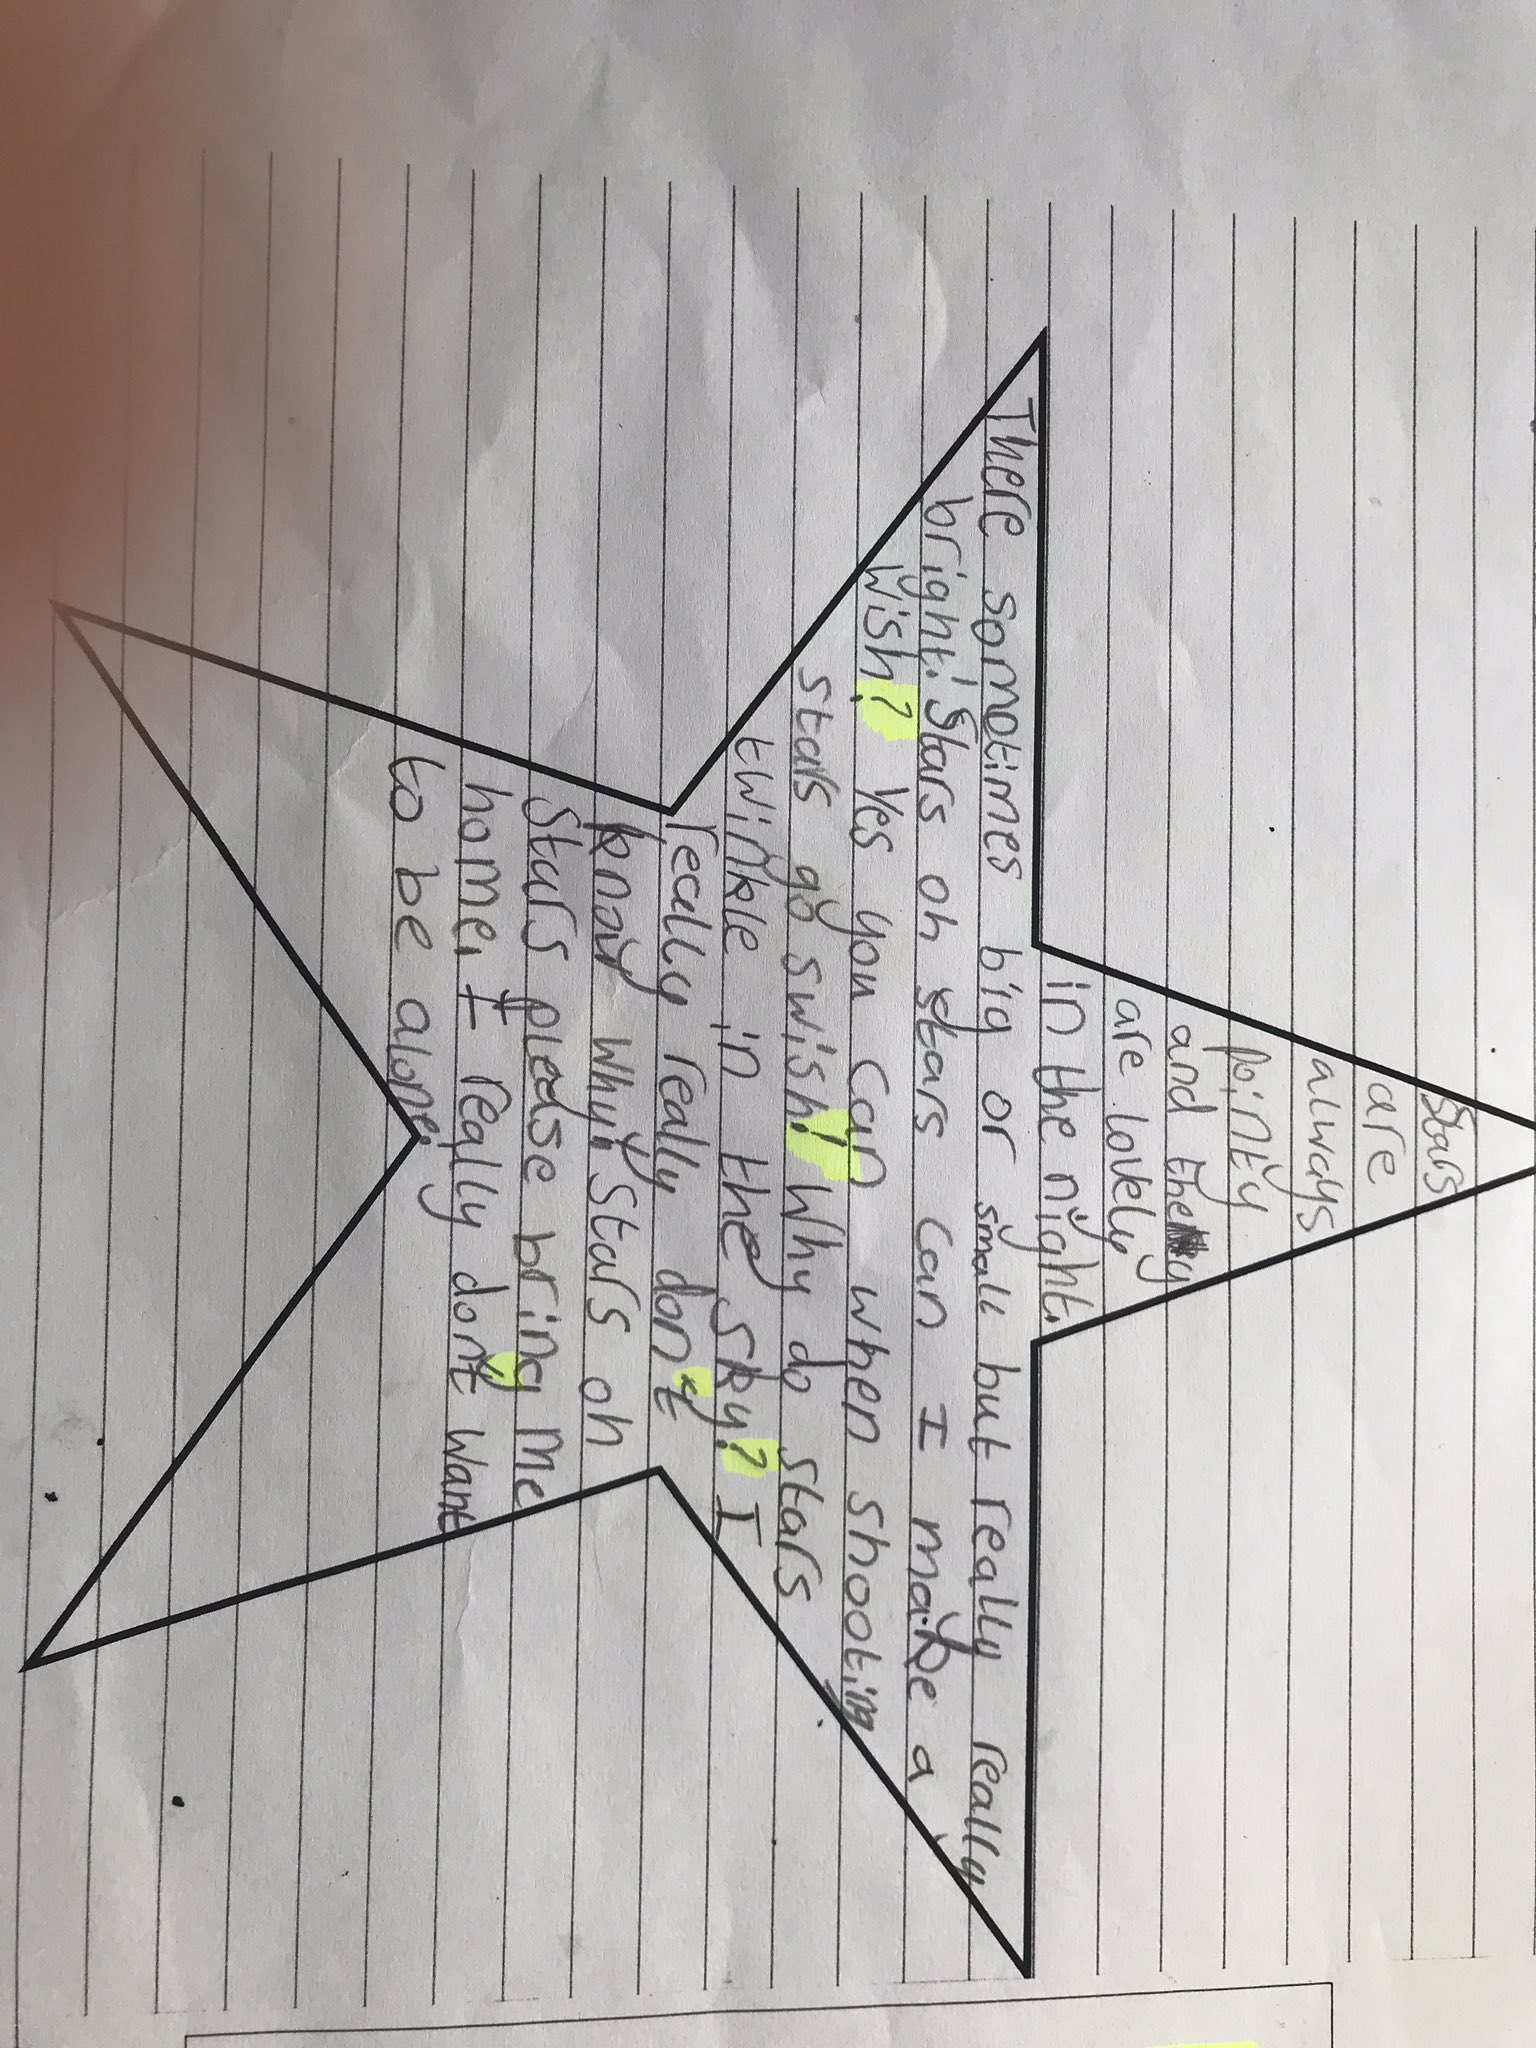 Stars
are
always
pointy
and they
are lovely
in the night.
There sometimes big or small but really really
bright! Stars oh stars can I make a
wish? Yes you can when shooting
stars go swish! Why do stars
twinkle in the sky? I
really really don't
know why. Stars oh
Stars please bring me
home. I really don't want
to be alone.